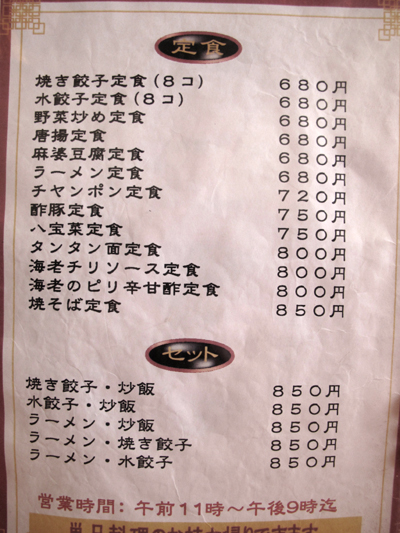 定食
焼き餃子定食(8コ) 680円
水餃子定食(8コ) 680円
野菜炒め定食 680円
唐揚定食 680円
麻婆豆腐定食 680円
ラーメン定食 680円
チヤンポン定食 720円
酢豚定食 750円
八宝菜定食 750円
タンタン面定食 800円
海老チリソース定食 800円
海老のピリ辛甘酢定食 800円
焼そば定食 850円
セット
焼き餃子・炒飯 850円
水餃子・炒飯 850円
ラーメン・炒飯 850円
ラーメン・焼き餃子 850円
ラーメン・水餃子 850円
営業時間：午前11時〜午後9時迄